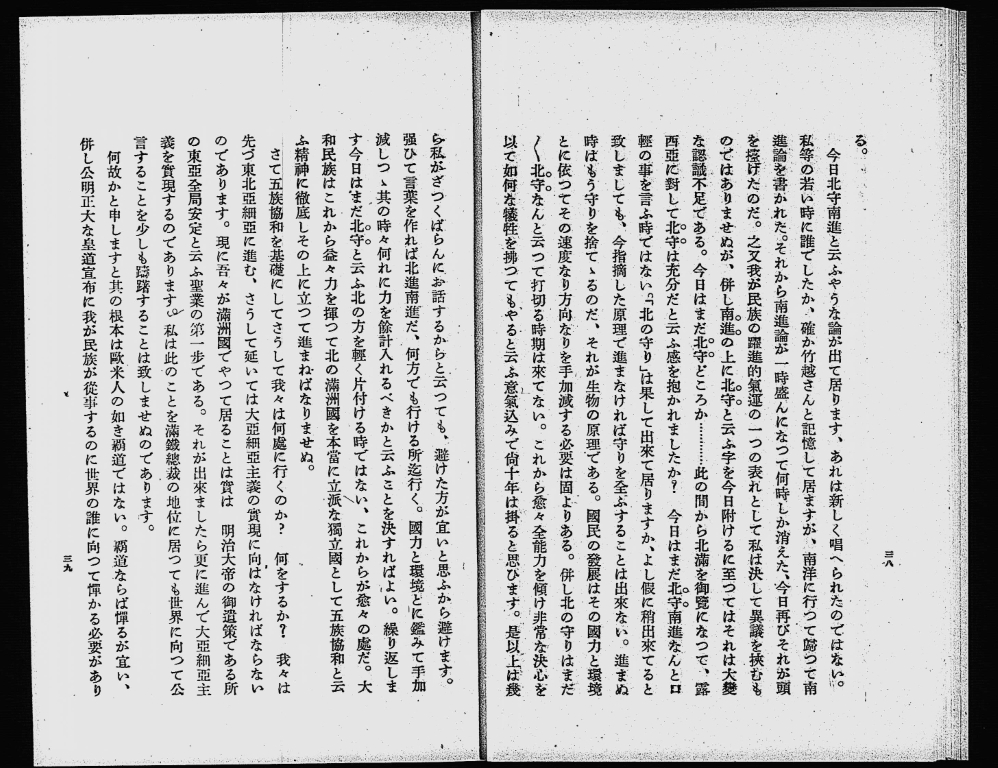 る。
今日北守南進と云ふやうな論が出て居ります、あれは新しく唱へられたのではない。
私等の若い時に誰でしたか、確か竹越さんと記憶して居ますが、南洋に行つて歸つて南
進論を書かれた。それから南進論が一時盛んになつて何時しか消えた、今日再びそれが頭
を擡げたのだ。之又我が民族の躍進的氣運の一つの表れとして私は決して異議を挾むも
のではありませぬが、併し南進の上に北守と云ふ字を今日附けるに至つてはそれは大變
な認識不足である。今日はまだ北守どころか…………此の間から北滿を御覽になつて、露
西亞に對して北守は充分だと云ふ感を抱かれましたか? 今日はまだ北守南進なんと口
輕の事を言ふ時ではない。「北の守り」は果して出來て居りますか、よし假に稍出來てると
致しましても、今指摘した原理で進まなければ守りを全ふすることは出來ない。進まぬ
時はもう守りを捨てゝるのだ、それが生物の原理である。國民の發展はその國力と環境
とに依つてその速度なり方向なりを手加減する必要は固よりある。併し北の守りはまだ
〱北守なんと云つて打切る時期は來てない。これから愈々全能力を傾け非常な決心を
以て如何な犧牲を拂つてもやると云ふ意氣込みで尙十年は掛ると思ひます。是以上は幾
三八
ら私がざつくばらんにお話するからと云つても、避けた方が宜いと思ふから避けます。
强ひて言葉を作れば北進南進だ、何方でも行ける所迄行く。國力と環境とに鑑みて手加
減しつゝ其の時々何れに力を餘計入れるべきかと云ふことを決すればよい。繰り返しま
す今日はまだ北守と云ふ北の方を輕く片付ける時ではない、これからが愈々の處だ。大
和民族はこれから益々力を揮つて北の滿洲國を本當に立派な獨立國として五族協和と云
ふ精神に徹底しその上に立つて進まねばなりませぬ。
さて五族協和を基礎にしてさうして我々は何處に行くのか? 何をするか? 我々は
先づ東北亞細亞に進む、さうして延いては大亞細亞主義の實現に向はなければならない
のであります。現に吾々が滿洲國でやつて居ることは實は 明治大帝の御遺策である所
の東亞全局安定と云ふ聖業の第一步である。それが出來ましたら更に進んで大亞細亞主
義を實現するのであります。私は此のことを滿鐵總裁の地位に居つても世界に向つて公
言することを少しも躊躇することは致しませぬのであります。
何故かと申しますと其の根本は歐米人の如き覇道ではない。覇道ならば憚るが宜い、
併し公明正大な皇道宣布に我が民族が從事するのに世界の誰に向つて憚かる必要があり
三九